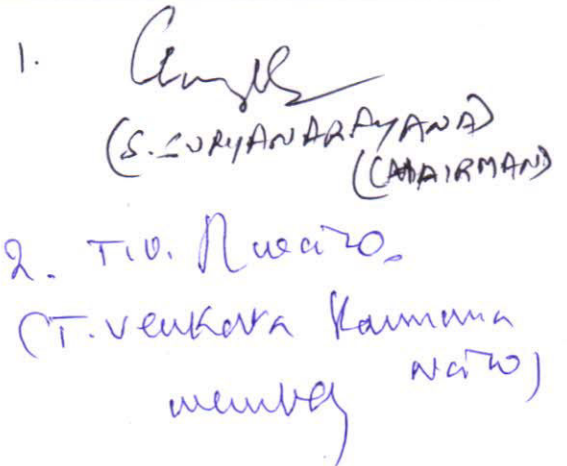 1.
(S. SURYANARAYANA)
(CHAIRMAN)
2. T.V.
(T. Venkata Ramana
Naidu)
member